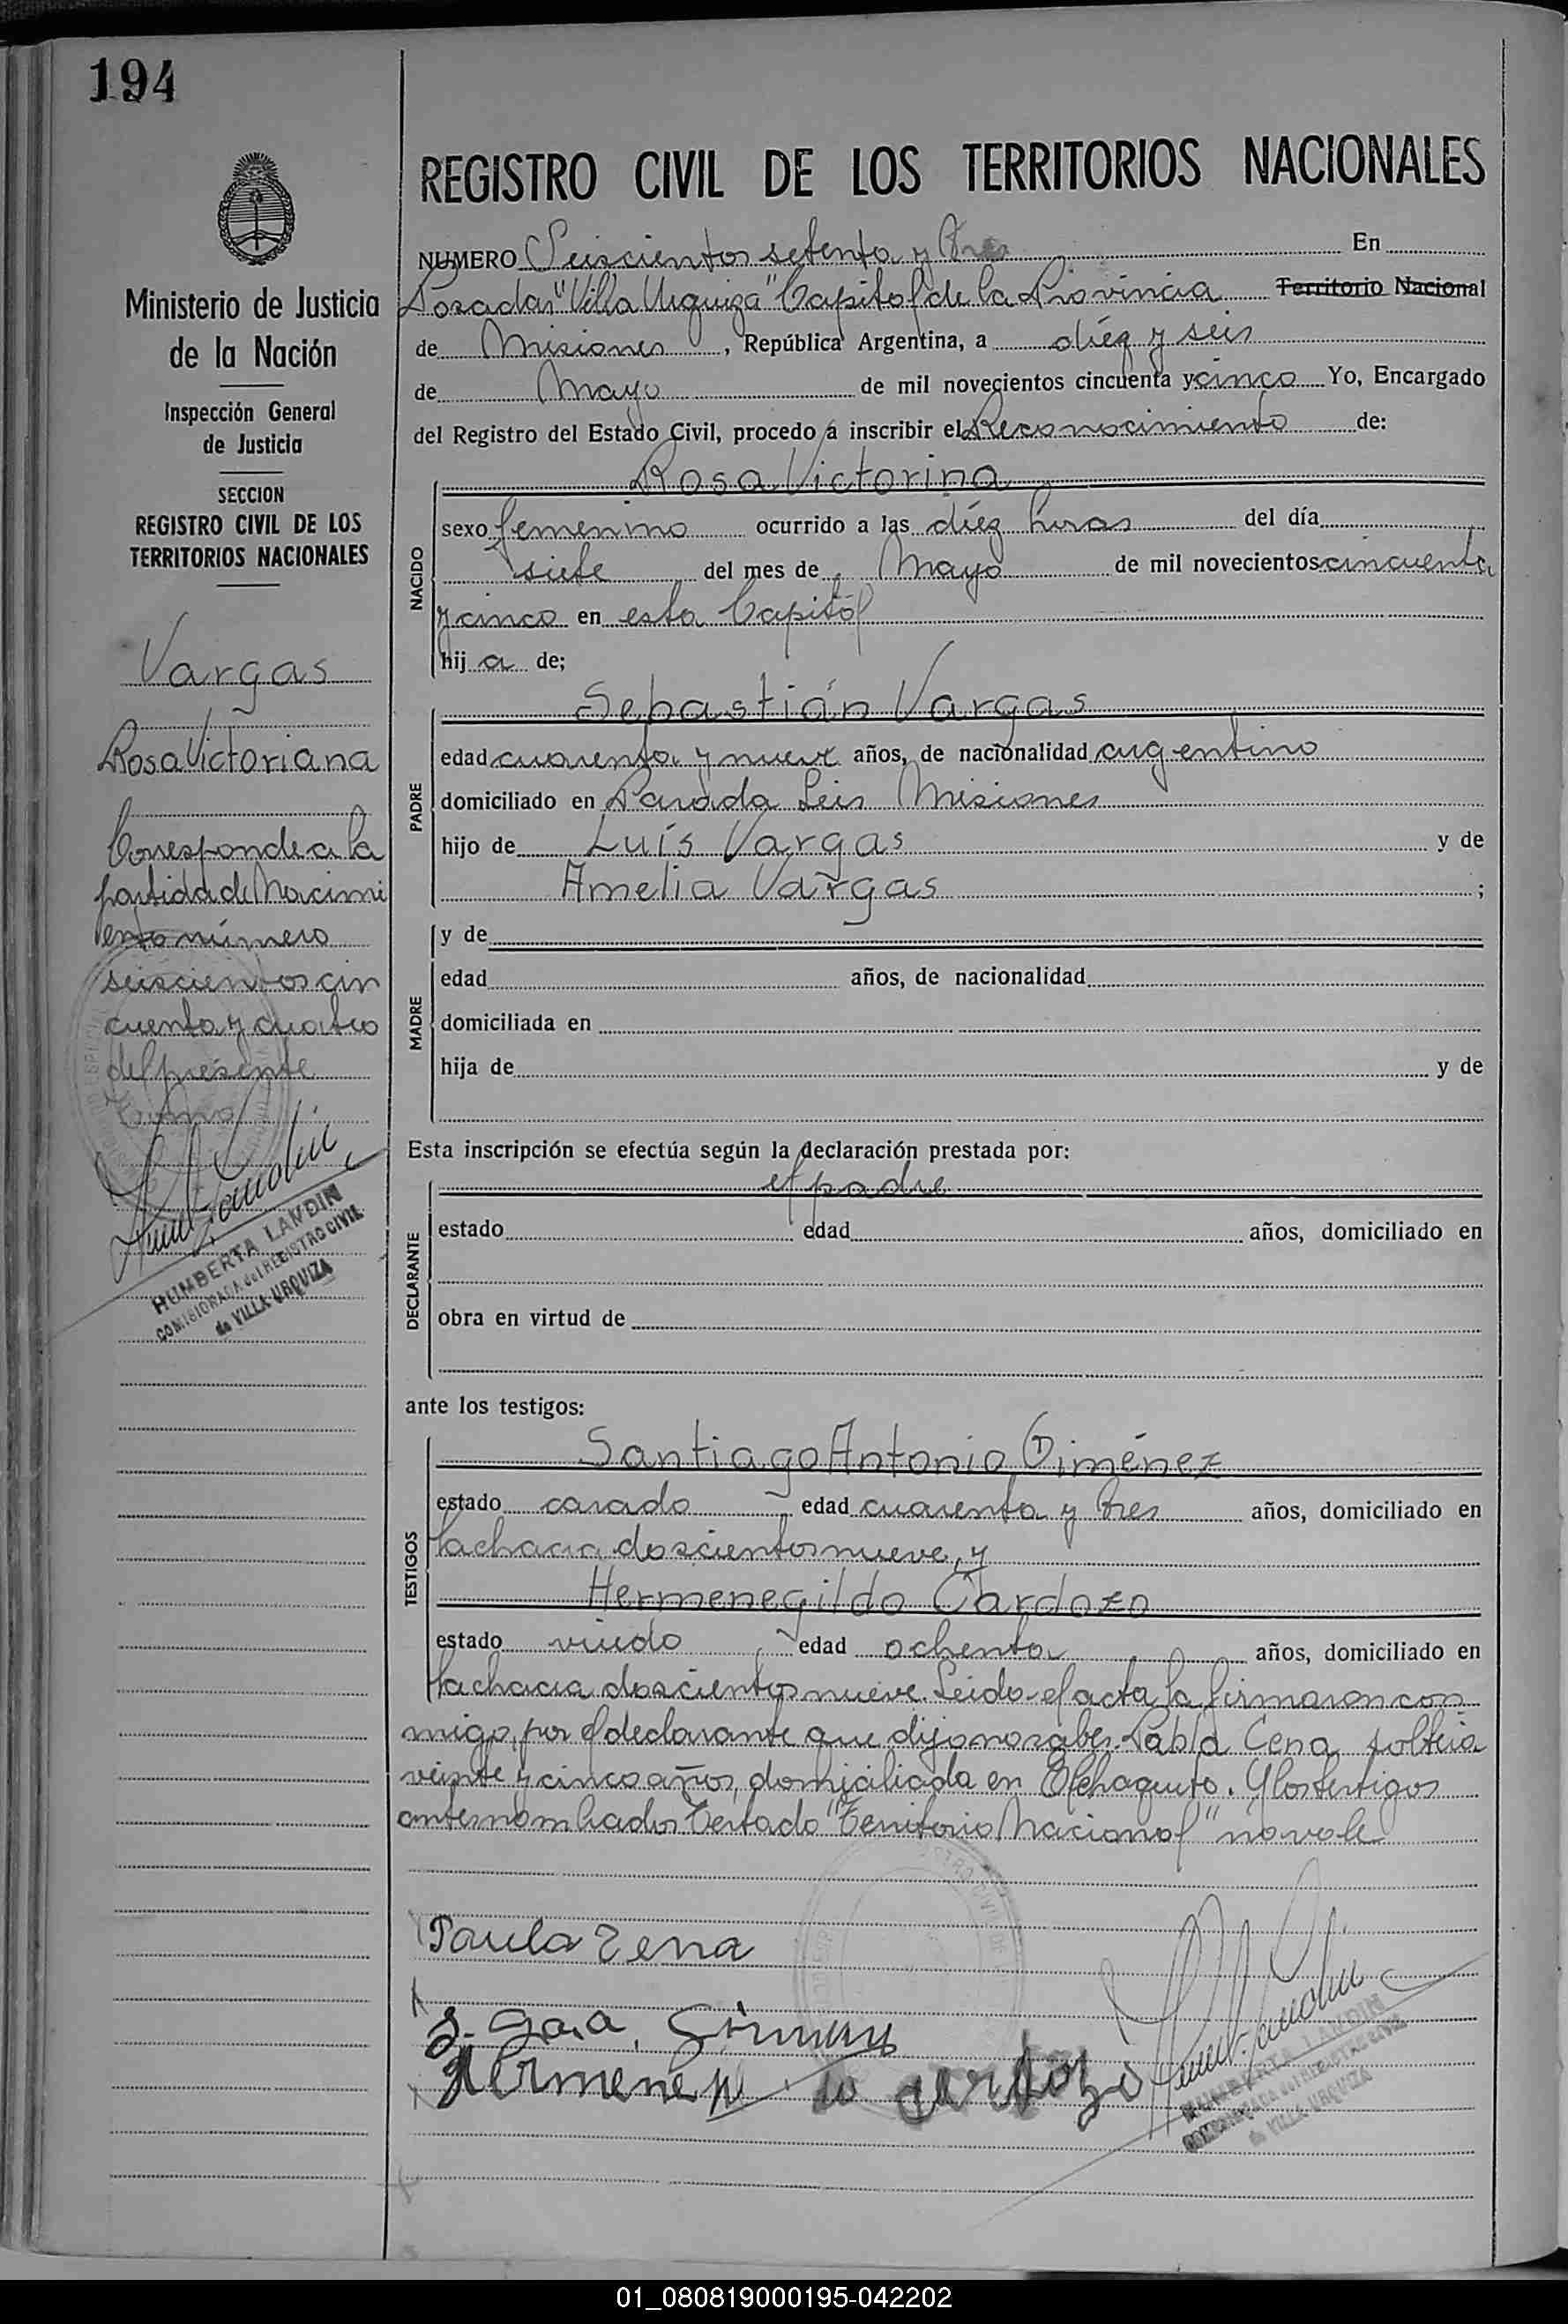 194
Ministerio de Justicia
de la Nación
Inspección General
de Justicia
SECCION
REGISTRO CIVIL DE LOS
TERRITORIOS NACIONALES
Vargas
Rosa Victoriana
Corresponde a la
partida de Nacimi
ento número
seiscientos cin
cuenta y cuatro
del presente
Tomo
HUMBERTA LANDIN
COMISIONADA del REGISTRO CIVIL
de VILLA URQUIZA
REGISTRO CIVIL DE LOS TERRITORIOS NACIONALES
NUMERO Seiscientos setenta y tres En
Posadas "Villa Urquiza" Capital de la Provincia Territorio Nacional
de Misiones, República Argentina, a diéz y seis
de Mayo de mil novecientos cincuenta y cinco Yo, Encargado
del Registro del Estado Civil, procedo a inscribir el Reconocimiento de:
NACIDO
Rosa Victorina
sexo femenino ocurrido a las diéz horas del día
siete del mes de Mayo de mil novecientos cincuenta
y cinco en esta Capital
hij a de;
PADRE
Sebastián Vargas
edad cuarenta y nueve años, de nacionalidad argentino
domiciliado en Parada Leis Misiones
hijo de Luís Vargas y de
Amelia Vargas ;
MADRE
y de
edad años, de nacionalidad
domiciliada en
hija de y de
Esta inscripción se efectúa según la declaración prestada por:
DECLARANTE
el padre
estado edad años, domiciliado en
obra en virtud de
ante los testigos:
TESTIGOS
Santiago Antonio Giménez
estado casado edad cuarenta y tres años, domiciliado en
Machacia doscientos nueve, y
Hermenegildo Cardozo
estado viudo edad ochenta años, domiciliado en
doscientos nueve. Leido el acta la firmaron con
migo, por el declarante que dijo no saber. Cena soltera
veinte y cinco años, domiciliada en El chaquito. Y los testigos
antes nombrados Testado "Territorio Nacional" no vale
Paula Zena
HUMBERTA LANDIN
COMISIONADA del REGISTRO CIVIL
de VILLA URQUIZA
01_080819000195-042202